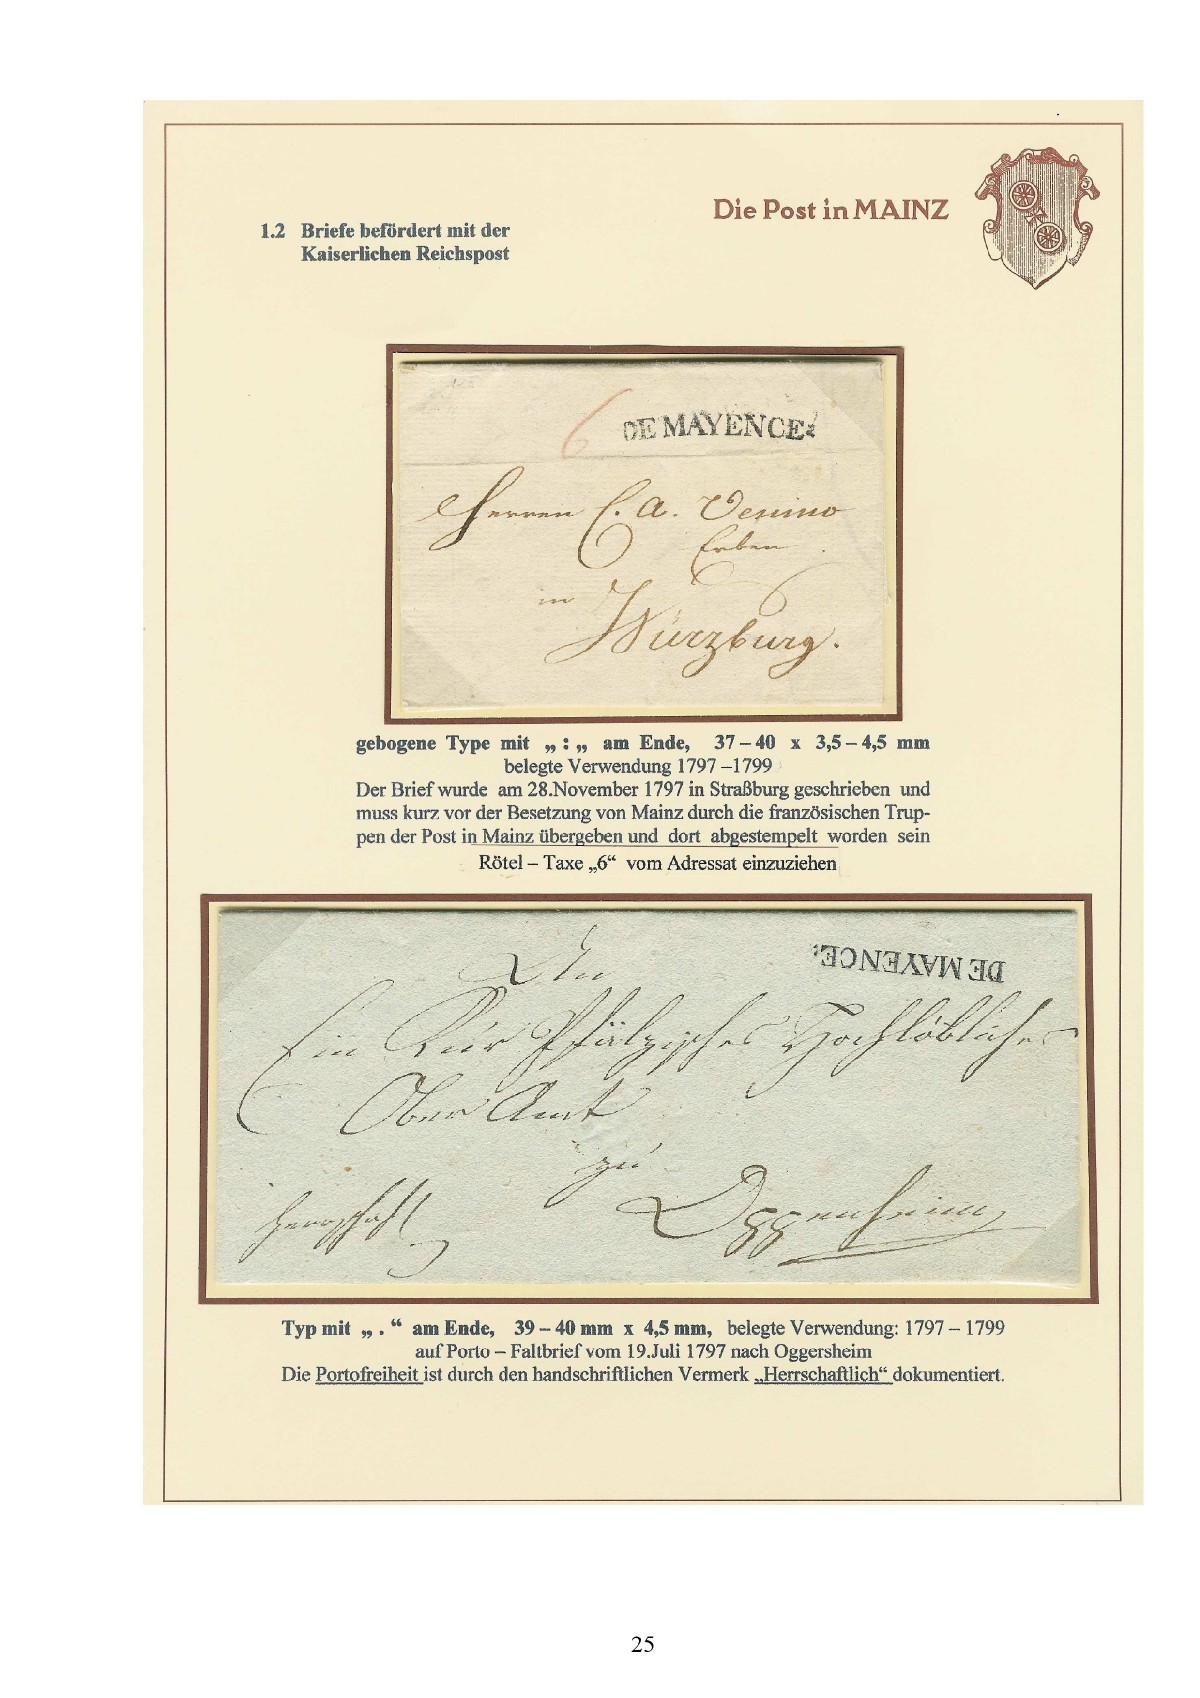 Die Post in MAINZ
1.2 Briefe befördert mit der
Kaiserlichen Reichspost
6
DE MAYENCE:
Herren C. A. Venino
Erben
in
Würzburg.
gebogene Type mit „ : „ am Ende, 37 – 40 x 3,5 – 4,5 mm
belegte Verwendung 1797 –1799
Der Brief wurde am 28.November 1797 in Straßburg geschrieben und
muss kurz vor der Besetzung von Mainz durch die französischen Trup-
pen der Post in Mainz übergeben und dort abgestempelt worden sein
Rötel – Taxe „6“ vom Adressat einzuziehen
DE MAYENCE.
An
Ein Kur Pfälzisches Hochlöbliches
Ober Amt
zu
Oppenheim
Typ mit „ . “ am Ende, 39 – 40 mm x 4,5 mm, belegte Verwendung: 1797 – 1799
auf Porto – Faltbrief vom 19.Juli 1797 nach Oggersheim
Die Portofreiheit ist durch den handschriftlichen Vermerk „Herrschaftlich“ dokumentiert.
25